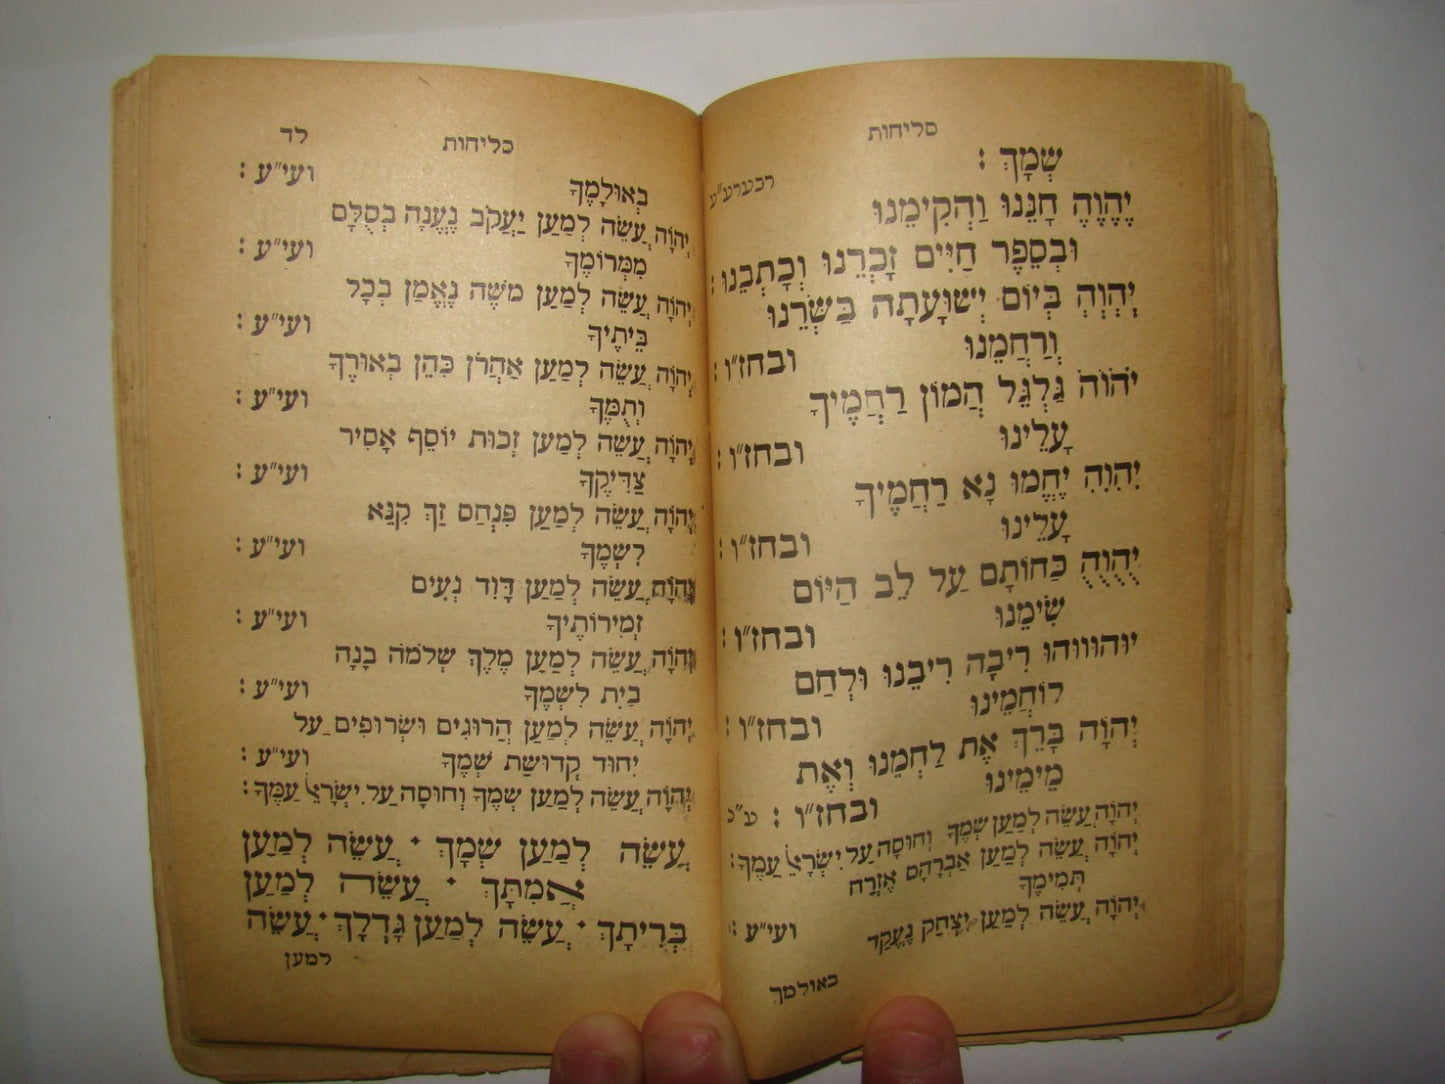 סליחות
שְׁמָךְ :
יֱהֱוֱהֱ חָנֵּנוּ וַהְקִימֵנוּ
וּבְסֵפֶר חַיִּים זָכְרֵנוּ וְכָתְבֵנוּ :
יְהְוְהְ בְּיוֹם יְשׁוּעָתָה בַּשְּׂרֵנוּ
וְרַחֲמֵנוּ ובחז״ו :
יֹהֹוֹהֹ גַּלְגֵּל הֲמוֹן רַחֲמֶיךָ
עָלֵינוּ ובחז״ו :
יִהִוִהִ יֶחֱמוּ נָא רַחֲמֶיךָ
עָלֵינוּ ובחז״ו :
יֻהֻוֻהֻ כַּחוֹתָם עַל לֵב הַיּוֹם
שִׂימֵנוּ ובחז״ו :
יוּהוּווּהוּ רִיבָה רִיבֵנוּ וּלְחַם
לוֹחֲמֵינוּ ובחז״ו :
יְהֹוָה בָּרֵךְ אֶת לַחְמֵנוּ וְאֶת
מֵימֵינוּ ובחז״ו :
יְהֹוָה עֲשֵׂה לְמַעַן שְׁמֶךָ וְחוּסָה עַל יִשְׂרָאֵל עַמֶּךָ :
יְהֹוָה עֲשֵׂה לְמַעַן אַבְרָהָם אֶזְרַח
תְּמִימֶךָ ועי״ע :
יְהֹוָה עֲשֵׂה לְמַעַן יִצְחָק נֶעֱקַד
באולמך
סליחות לד
בְּאוּלָמֶךָ ועי״ע :
יְהֹוָה עֲשֵׂה לְמַעַן יַעֲקֹב נֶעֱנָה בְסֻלָּם
מִמְּרוֹמֶךָ ועי״ע :
יְהֹוָה עֲשֵׂה לְמַעַן מֹשֶׁה נֶאֱמַן בְּכָל
בֵּיתֶיךָ ועי״ע :
יְהֹוָה עֲשֵׂה לְמַעַן אַהֲרֹן כִּהֵן בְּאוּרֶךָ
וְתֻמֶּךָ ועי״ע :
יְהֹוָה עֲשֵׂה לְמַעַן זְכוּת יוֹסֵף אָסִיר
צַדִּיקֶךָ ועי״ע :
יְהֹוָה עֲשֵׂה לְמַעַן פִּנְחָס זַךְ קִנֵּא
לִשְׁמֶךָ ועי״ע :
יְהֹוָה עֲשֵׂה לְמַעַן דָּוִד נְעִים
זְמִירוֹתֶיךָ ועי״ע :
יְהֹוָה עֲשֵׂה לְמַעַן מֶלֶךְ שְׁלֹמֹה בָּנָה
בַיִת לִשְׁמֶךָ ועי״ע :
יְהֹוָה עֲשֵׂה לְמַעַן הֲרוּגִים וּשְׂרוּפִים עַל
יִחוּד קְדוּשַּׁת שְׁמֶךָ ועי״ע :
יְהֹוָה עֲשֵׂה לְמַעַן שְׁמֶךָ וְחוּסָה עַל יִשְׂרָאֵל עַמֶּךָ :
עֲשֵׂה לְמַעַן שְׁמָךְ · עֲשֵׂה לְמַעַן
אֲמִתָּךְ · עֲשֵׂה לְמַעַן
בְּרִיתָךְ · עֲשֵׂה לְמַעַן גָּדְלָךְ · עֲשֵׂה
למען